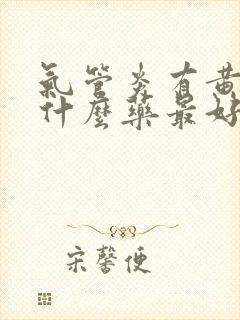 氣管炎有黃
什麼藥最好
宋馨便